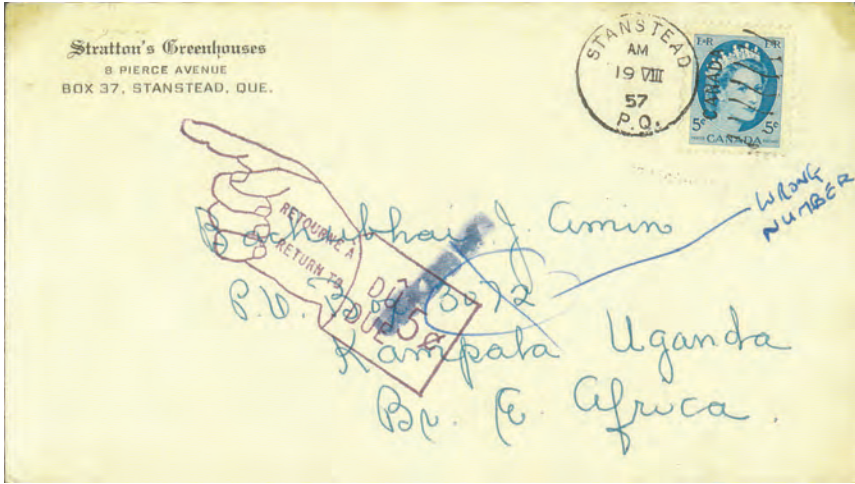 Stratton's Greenhouses
8 PIERCE AVENUE
BOX 37, STANSTEAD, QUE.
STANSTEAD
AM
19 VIII
57
P.Q.
E II R E II R
CANADA
5¢ 5¢
CANADA
WRONG
NUMBER
RETOURNÉ À
RETURN TO
DÛ
DUE 5¢
Bachubhai J. Amin
P.O. Box 3072
Kampala Uganda
Br. E. Africa.